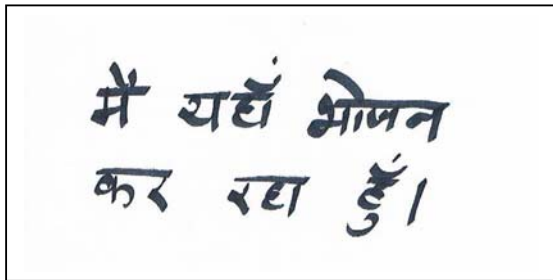 मै यहाँ भोजन
कर रहा हुँ।